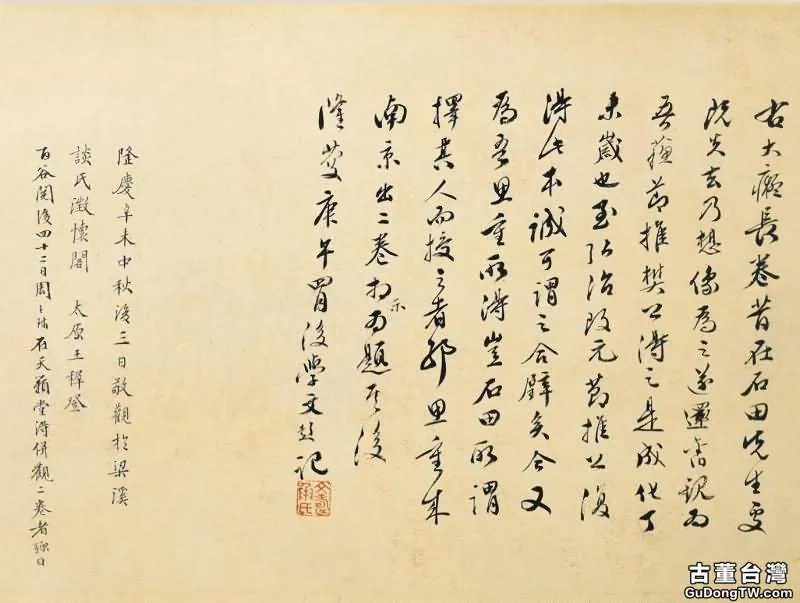 右大癡長卷昔在石田先生處
既失去乃想像為之遂還舊觀為
吾蘇節推樊公得之是成化丁
未歲也至弘治改元節推公復
得此本誠可謂之合璧矣今又
為吾思重所得豈石田所謂
擇其人而授之者耶思重來
南京出二卷相示為題其後
隆慶庚午後學文彭記
文壽承氏
隆慶辛未中秋後三日敬觀於梁溪
談氏澂懷閣 太原王穉登
百谷閱後四十二日周天球在天籟堂得併觀二卷者弥日
古董台灣
GuDongTW.com